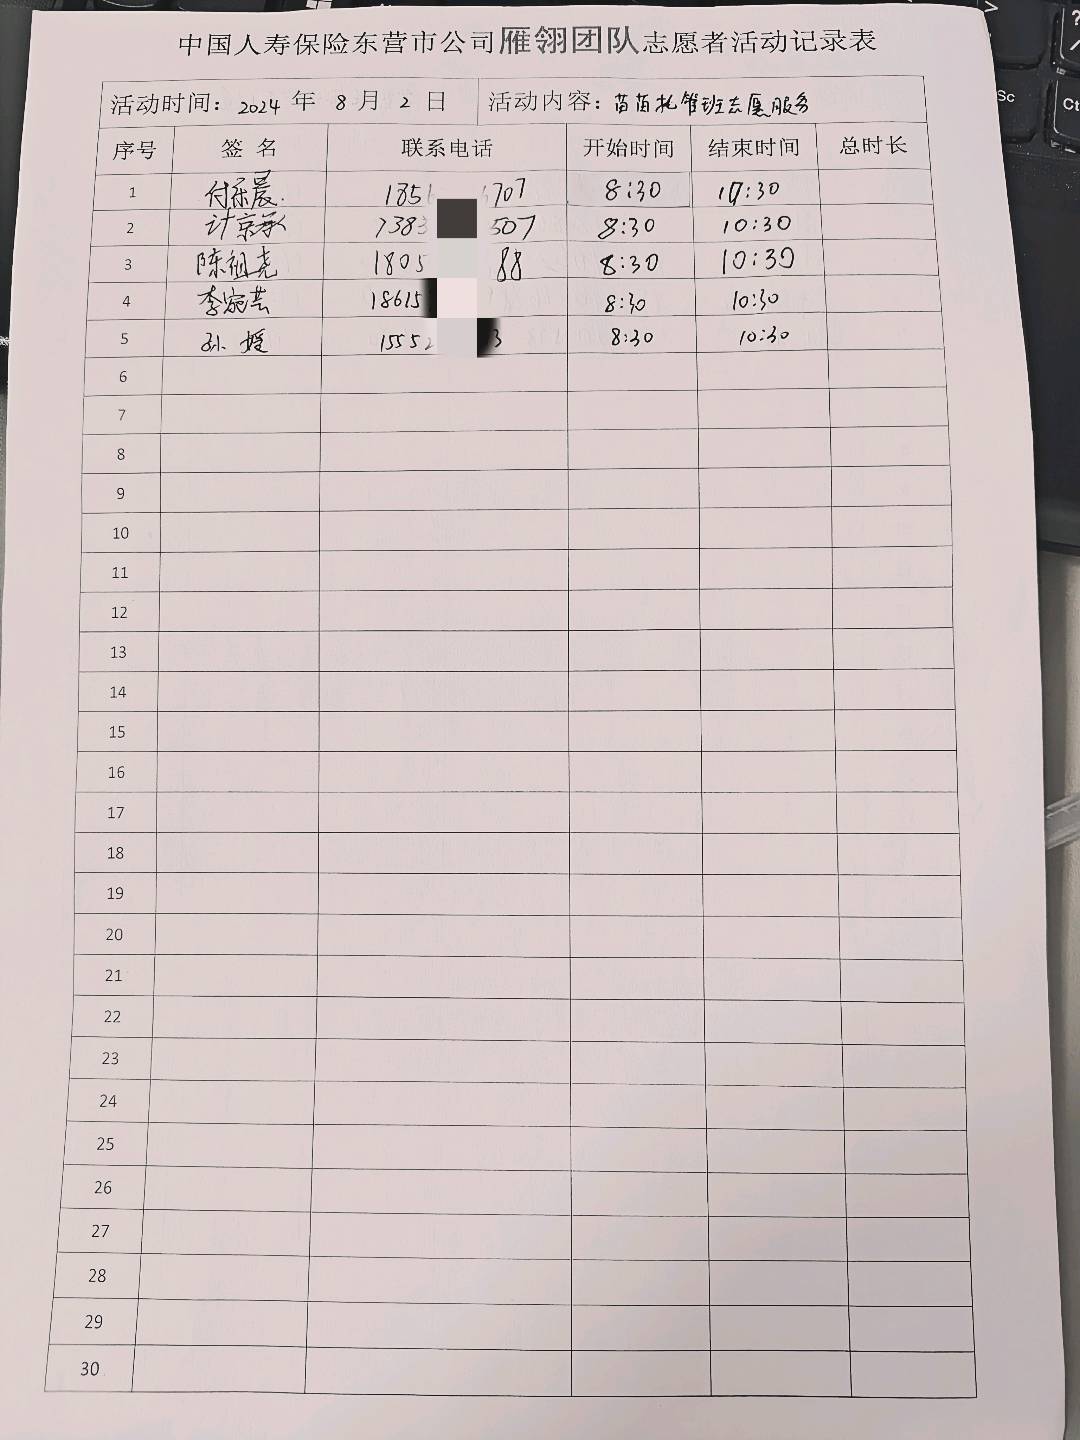 中国人寿保险东营市公司雁翎团队志愿者活动记录表
活动时间：2024 年 8 月 2 日 活动内容：苗苗托管班志愿服务
序号 签名 联系电话 开始时间 结束时间 总时长
1 付乐晨 185 707 8:30 10:30
2 计京承 7383 507 8:30 10:30
3 陈祖尧 1805 88 8:30 10:30
4 李宛芸 18615 8:30 10:30
5 孙媛 1555 3 8:30 10:30
6
7
8
9
10
11
12
13
14
15
16
17
18
19
20
21
22
23
24
25
26
27
28
29
30
Sc
Ct